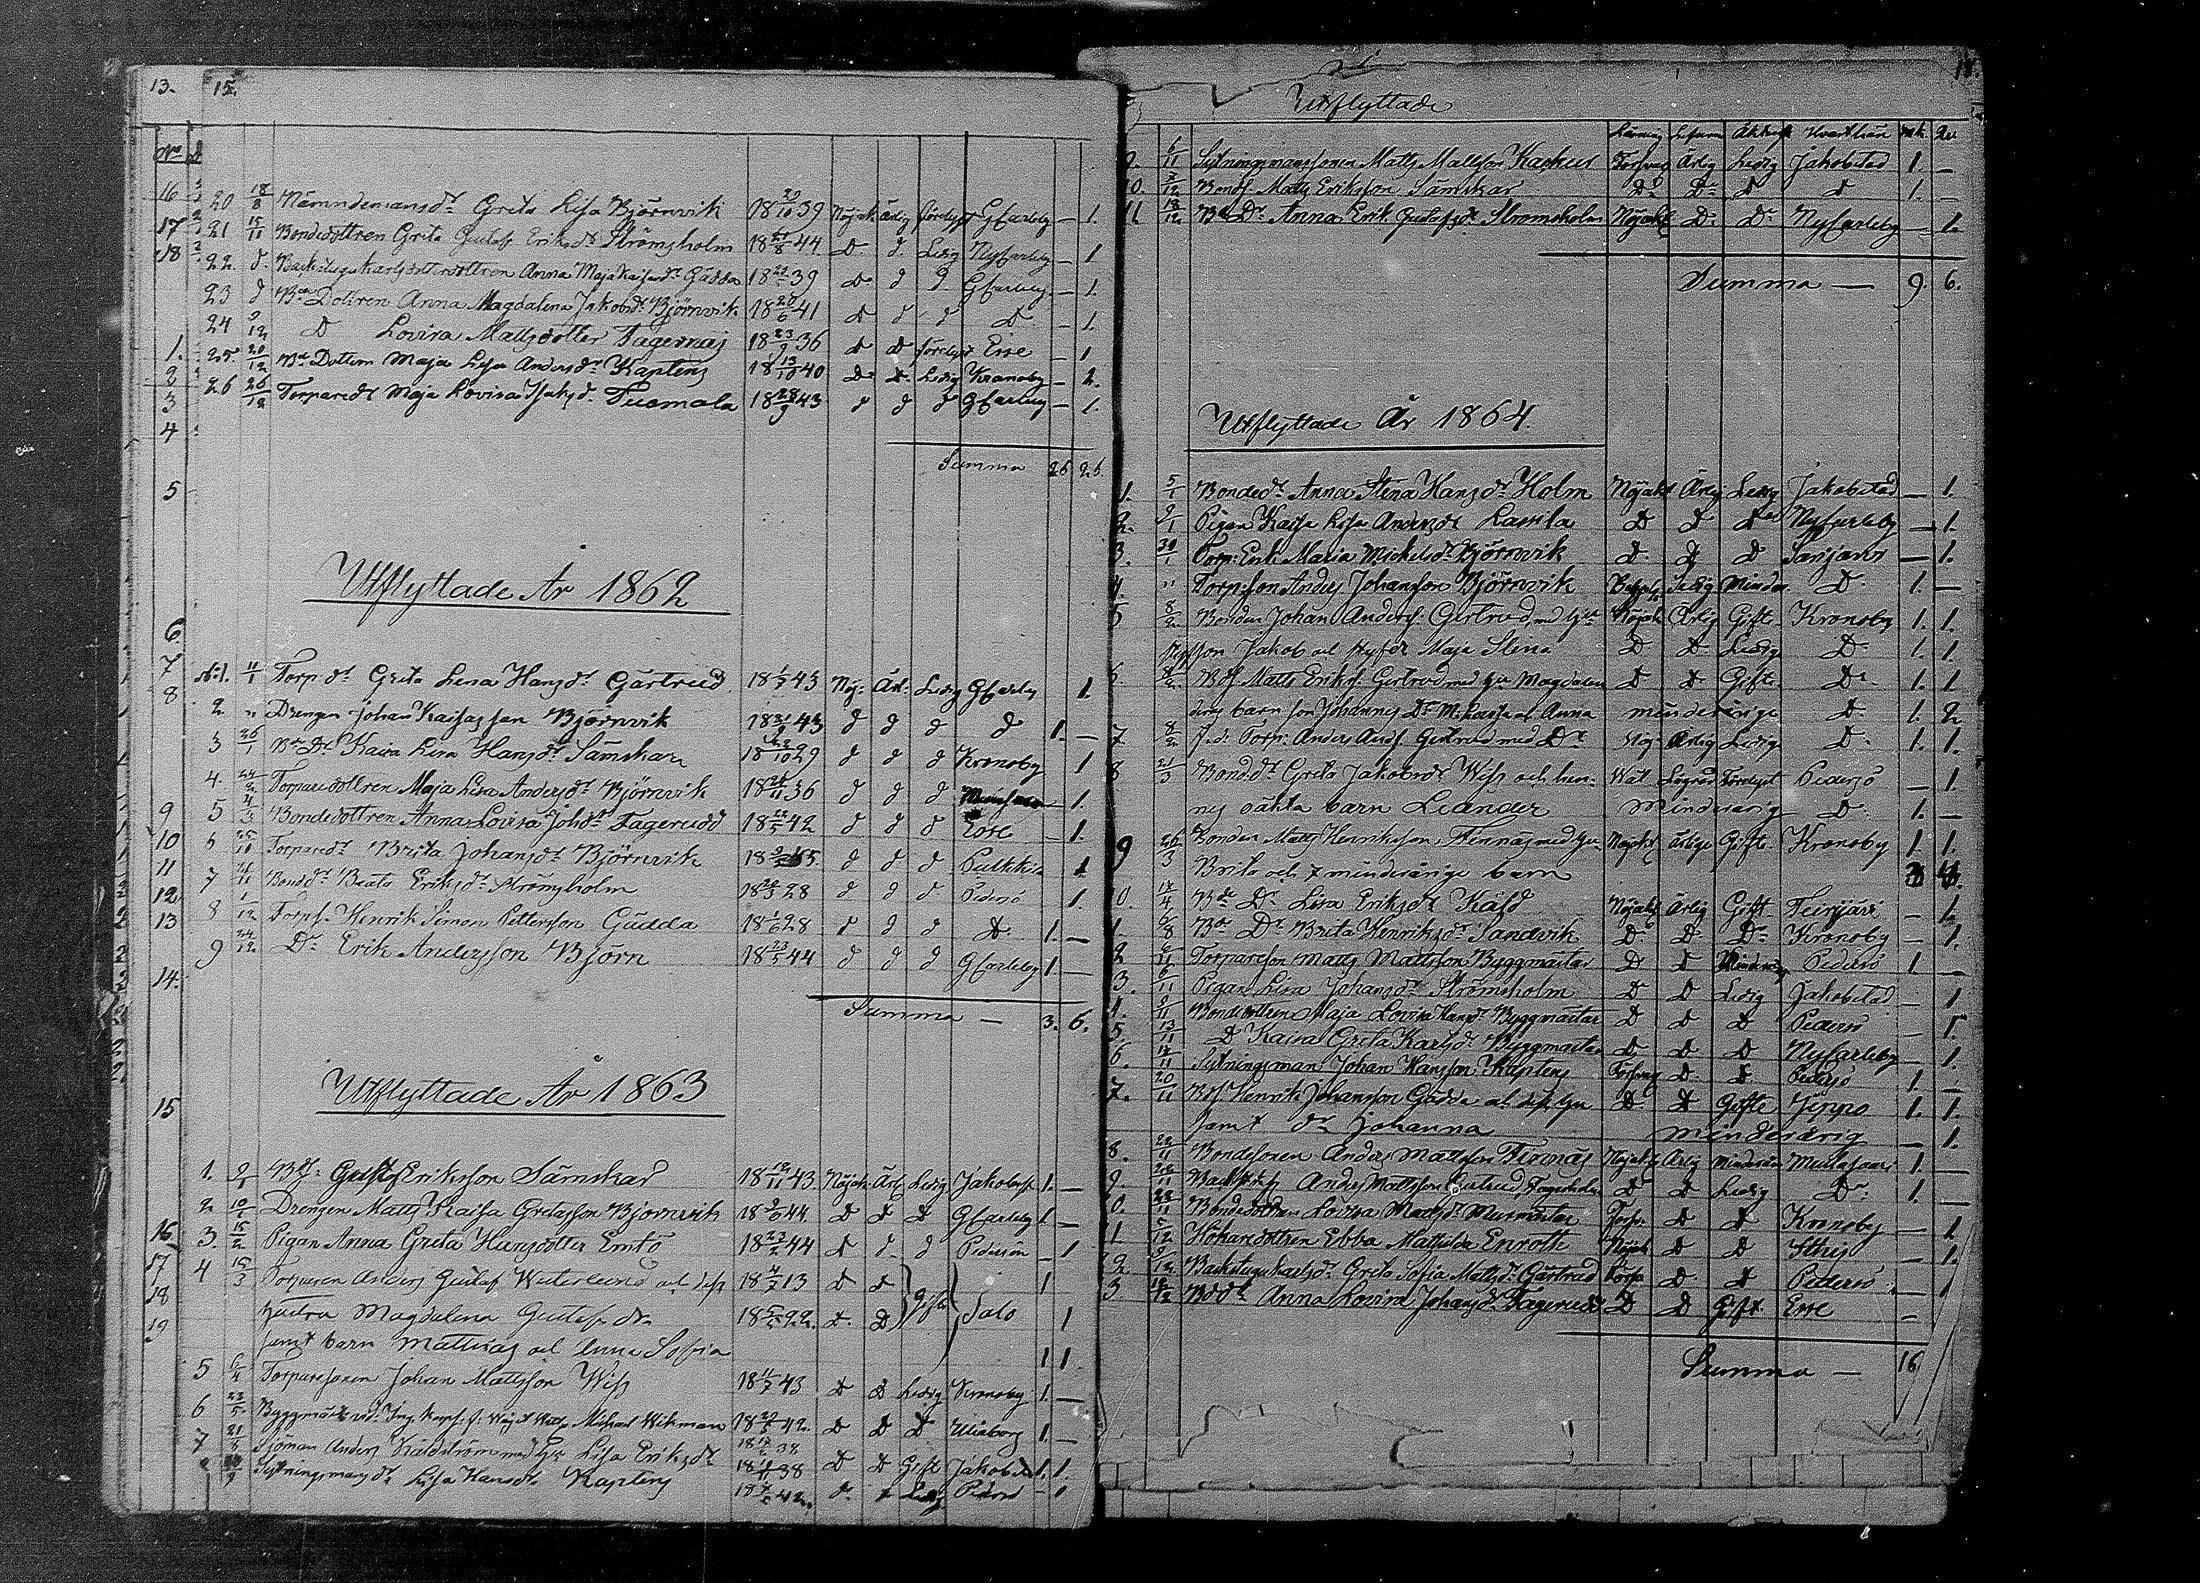 13. 15.
No
16 20 18/8 Nämndemansdr Greta Lisa Björnvik 18 29/10 39 Nöjakt ärlig förelyst GCarleby — 1.
17 21 15/11 Bondedottren Greta Gustafs Eriksdr Strömsholm 18 21/8 44 D. d. Ledig NyCarleby — 1
18 22. d. Backstugukarlsdotterdottren Anna Maja Kaisadr Gädda 18 39 D d d GCarleby — 1.
23 d Bde Dottren Anna Magdalena Jakobsdr Björnvik 18 20/6 41 D d d D — 1.
24 9/12 D Lovisa Mattsdotter Fagernäs 18 23/9 36 D D förelyst Esse — 1
1. 25. 20/12 Bde Dottren Maja Lisa Andersdr Kaptens 18 13/10 40 D. D. Ledig Kronoby — 2.
2 26 26/12 Torparedr Maja Lovisa Isaksd. Tuomala 18 28/9 43 d d d GCarleby — 1.
3
4
Summa 26 26.
5
Utflyttade År 1862
6.
7 No 1. 11/1 Torp dr Greta Lena Hansdr Gärtrud 18 1/7 43 Nöj: Ärl: Ledig GCarleby 1.
8 2 " Drengen Johan Kaisasson Björnvik 18 43 d d d d 1. —
3 26/1 Bde Dr Kaisa Lisa Hansdr Sämskar 18 /10 29 d d d Kronoby 1
4. Torparedottren Maja Lisa Andersdr Björnvik 18 /11 36 d d d — 1.
9 5 Bondedottren Anna Lovisa Johsdr Fagerudd 18 42 d d d Esse — 1.
10 6 25/10 Torparedr Brita Johansdr Björnvik 18 d d d 1
11 7 Bondedr Beata Eriksdr Strömsholm 18 20/3 28 d d d Pedersö 1.
12 8 1/12 Torps. Henrik Simon Pettersson Gädda 18 1/6 28 d d d D. 1. —
13 9 24/12. Dn Erik Andersson Björn 18 44 d d d GCarleby 1 —
14. Summa — 3. 6.
Utflyttade År 1863
15
1. Bds. Gustf Eriksson Sämskar 18 12/11 43 Nöjakt Ärl Ledig Jakobst. 1. —
2 Drengen Matts Kaisa Gretasson Björnvik 18 44 D D D GCarleby 1 —
16 3. 15/2 Pigan Anna Greta Hansdotter Emtö 18 23/2 44 D d d Pedersöre — 1
17 4 15/3 Torparen Anders Gustaf Westerlund och dess 18 4/7 13 D D Gifte Salo 1
18 hustru Magdalena Gustafsdr 18 22. D. D 1
19 samt barn Mattias och Anna Sofia 1 1
5 6/4 Torparesonen Johan Mattsson Wiss 18 11/7 43 D D Ledig Kronoby 1. —
6 23/5 Byggmäst. Michael Wikman 18 42 D D D Uleåborg 1. —
7 21/8 Sjöman Anders Källström med hu Lisa Eriksdr 18 38 18 38 D D Gift Jakobstad 1. 1.
Sytningsmansdr Lisa Hansdr Kaptens 18 42. d. d Ledig Pedersö — 1
Utflyttade
Läsning Leferne Äktensk Hvart hän mk. qv.
9. 6/11 Sytningsmanssonen Matts Mattsson Kackur Försvag Ärlig Ledig Jakobstad 1. —
10. 2/12 Bonds Matts Eriksson Sämskar Do Dn D D 1. —
11. 18/12. Bde Dr Anna Erik Gustafsdr Strömsholm Nöjakt D. Dn NyCarleby — 1.
Summa — 9. 6.
Utflyttade År 1864.
1. 5/1 Bondedr Anna Stena Hansdr Holm Nöjakt Ärlig Ledig Jakobstad — 1.
2. 9/1 Pigan Kaisa Lisa Andersdr Lassila D D D NyCarleby — 1.
3. 30/1 Torp: Enk Maria Michelsdr Björnvik D. D D — 1.
4. " Torp: son Anders Johansson Björnvik Ledig Minder D. 1. —
5 8/2 Bonden Johan Anders. Gertrud med hu Nöjakt Ärlig Gifte Kronoby 1. 1.
styfson Jakob och styfdr Maja Stina D D Ledige D. 1. 1.
6. Bds Matts Eriks. Gertrud med hu Magdalena D D Gifte Dn 1. 1.
dess barn son Johannes Dr M. Lovisa och Anna minderårige D. 1. 2
7 8/2 Torp: Anders Ands. Gertrud med Dr Nöj Ärlig Ledige D. 1. 1.
8 21/3 Bond.dr Greta Jakobsdr Wiss och hen- Wäl Lägrad Förelyst Pedersö — 1.
nes oäkta barn Leander Minderårig D. 1. —
9 26/3 Bonden Matts Henriksson Finnäs med hu Nöjakt ärlige Gifte Kronoby 1. 1.
Brita och 7 minderårige barn 3 4.
10. 12/4 Bde Dr Lisa Eriksdr Käld Nöjakt Ärlig Gift — 1.
1. 6/8 Bde Dr Brita Henriksdr Sandvik D. D. Dn Kronoby — 1.
2 Torpareson Matts Mattsson Byggmästar D D Minderårig Pedersö 1. —
3. 6/11 Pigan Lisa Johansdr Strömsholm D D Ledig Jakobstad — 1
4. 8/11 Bondedottren Maja Lovisa Hansdr Byggmästar D D D Pedersö — 1.
5. 13/11 D Kaisa Greta Karlsdr Byggmästar D D D NyCarleby — 1.
6. 17/11 Sytningsman Johan Hansson Kaptens Försvag D. D Pedersö 1. —
7. 20/11 Bds Henrik Johansson Gädda och dess hu D. D Gifte Jeppo 1. 1.
samt dr Johanna minderårig — 1.
8. 22/11 Bondesonen Anders Mattsson Finnäs Nöjakt Ärlig Minderår 1. —
9. Backst.s Anders Mattsson Fagerholm D D Ledig Dn. 1. —
0. 28/11 Bondedottren Lovisa Mattsdr Murmästar Försv. D D Kronoby — 1
1. 5/12 Kokaredottren Ebba Mathilda Enroth Nöjakt D D — 1.
2. 9/12 Backstugukarlsdr Greta Sofia Mattsdr Gärtrud Försv D. D Pedersö — 1
3. Bdedr Anna Lovisa Johansdr Fagerudd D D Gift Esse —
Summa — 16